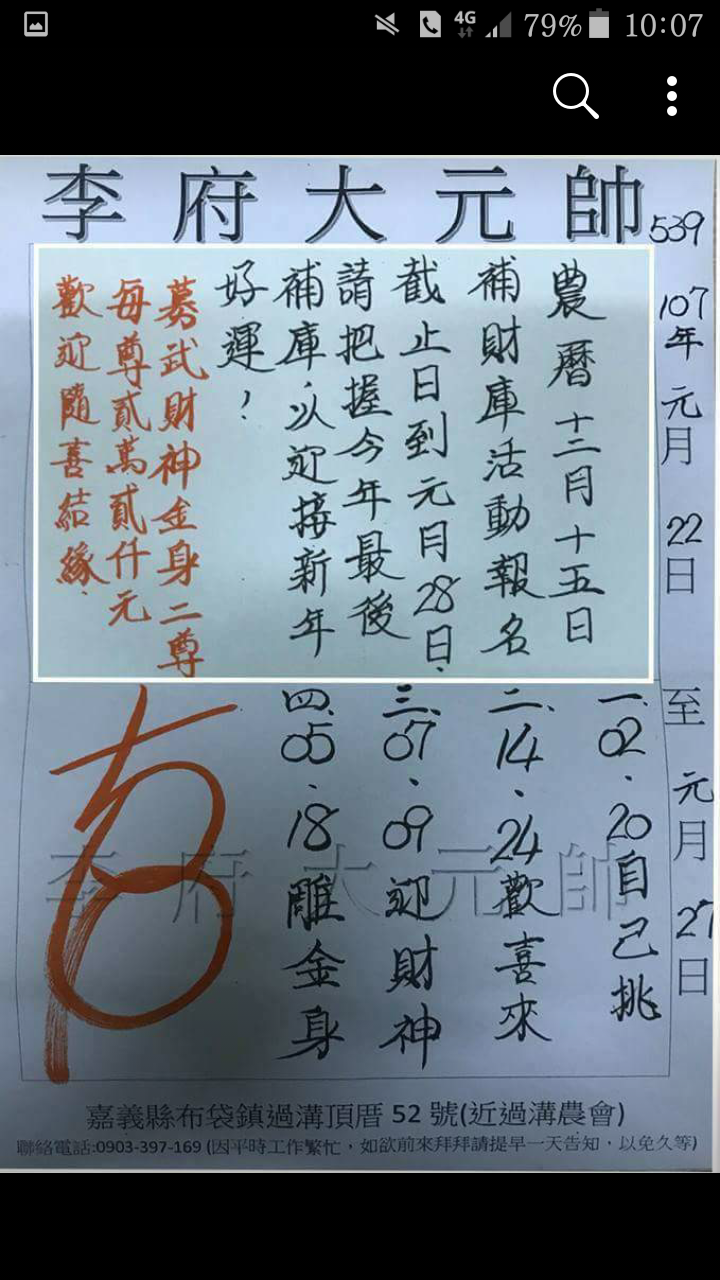 4G 79% 10:07
李府大元帥
539
107年 元月 22日 至 元月 27日
農曆十二月十五日
補財庫活動報名
截止日到元月28日、
請把握今年最後
補庫、以迎接新年
好運！
募武財神金身二尊
每尊貳萬貳仟元
歡迎隨喜結緣、
一、02、20自己挑
二、14、24歡喜來
三、07、09迎財神
四、05、18雕金身
李府大元帥
嘉義縣布袋鎮過溝頂厝 52 號(近過溝農會)
聯絡電話:0903-397-169 (因平時工作繁忙，如欲前來拜拜請提早一天告知，以免久等)